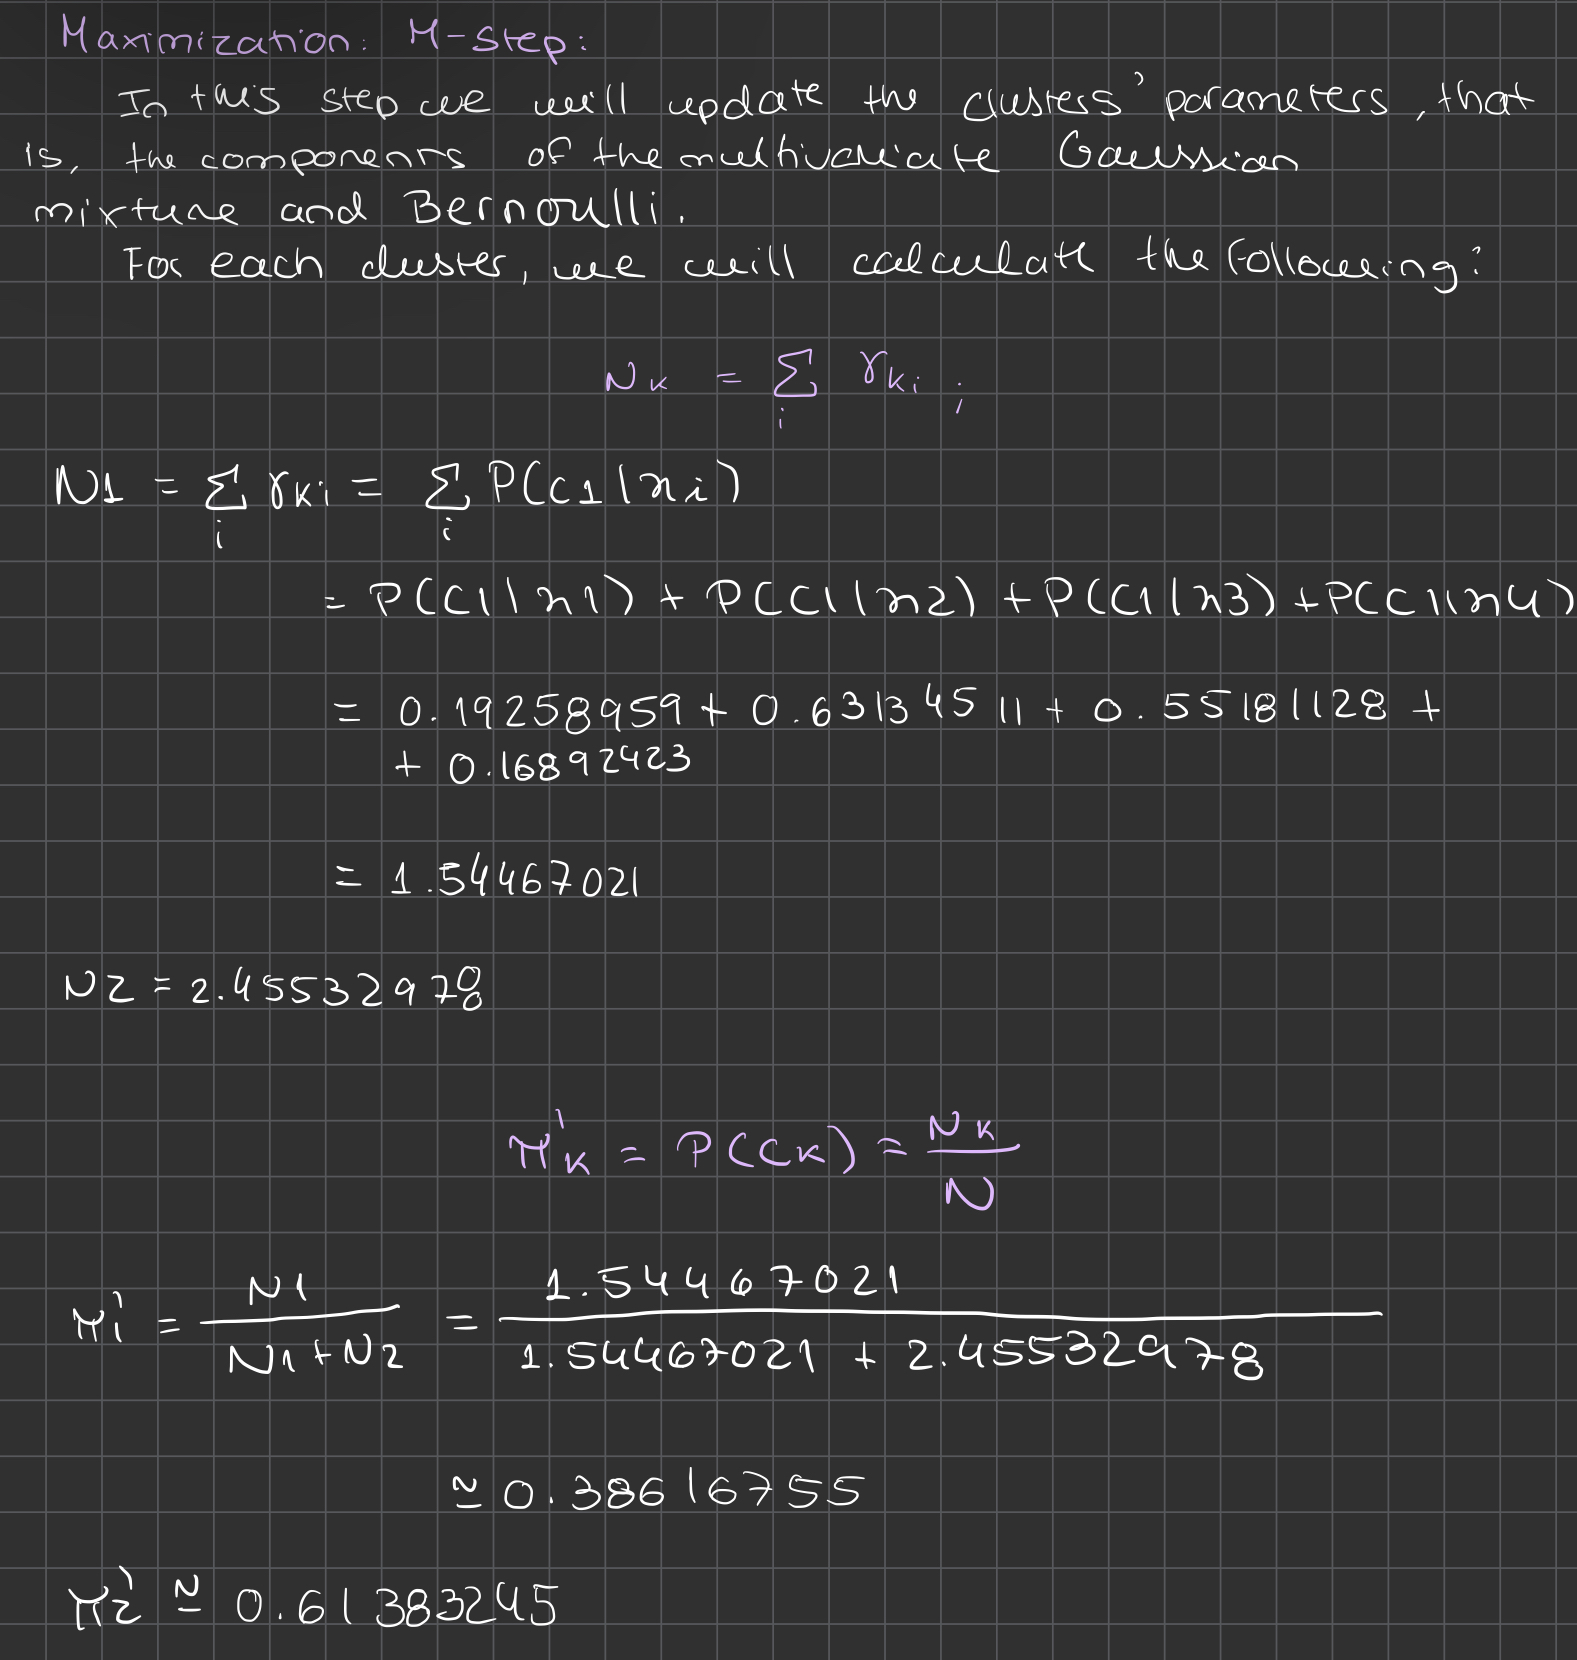 Maximization: M-step:
In this step we will update the clusters' parameters, that
is, the components of the multivariate Gaussian
mixture and Bernoulli.
For each cluster, we will calculate the following:
Nk = Σ γki ;
i
N1 = Σ γki = Σ P(C1|xi)
i i
= P(C1|x1) + P(C1|x2) + P(C1|x3) + P(C1|x4)
= 0.19258959 + 0.63134511 + 0.55181128 +
+ 0.16892423
= 1.54467021
N2 = 2.45532978
π'k = P(Ck) = Nk
N
π'1 = N1 = 1.54467021
N1+N2 1.54467021 + 2.45532978
≃ 0.38616755
π'2 ≃ 0.61383245